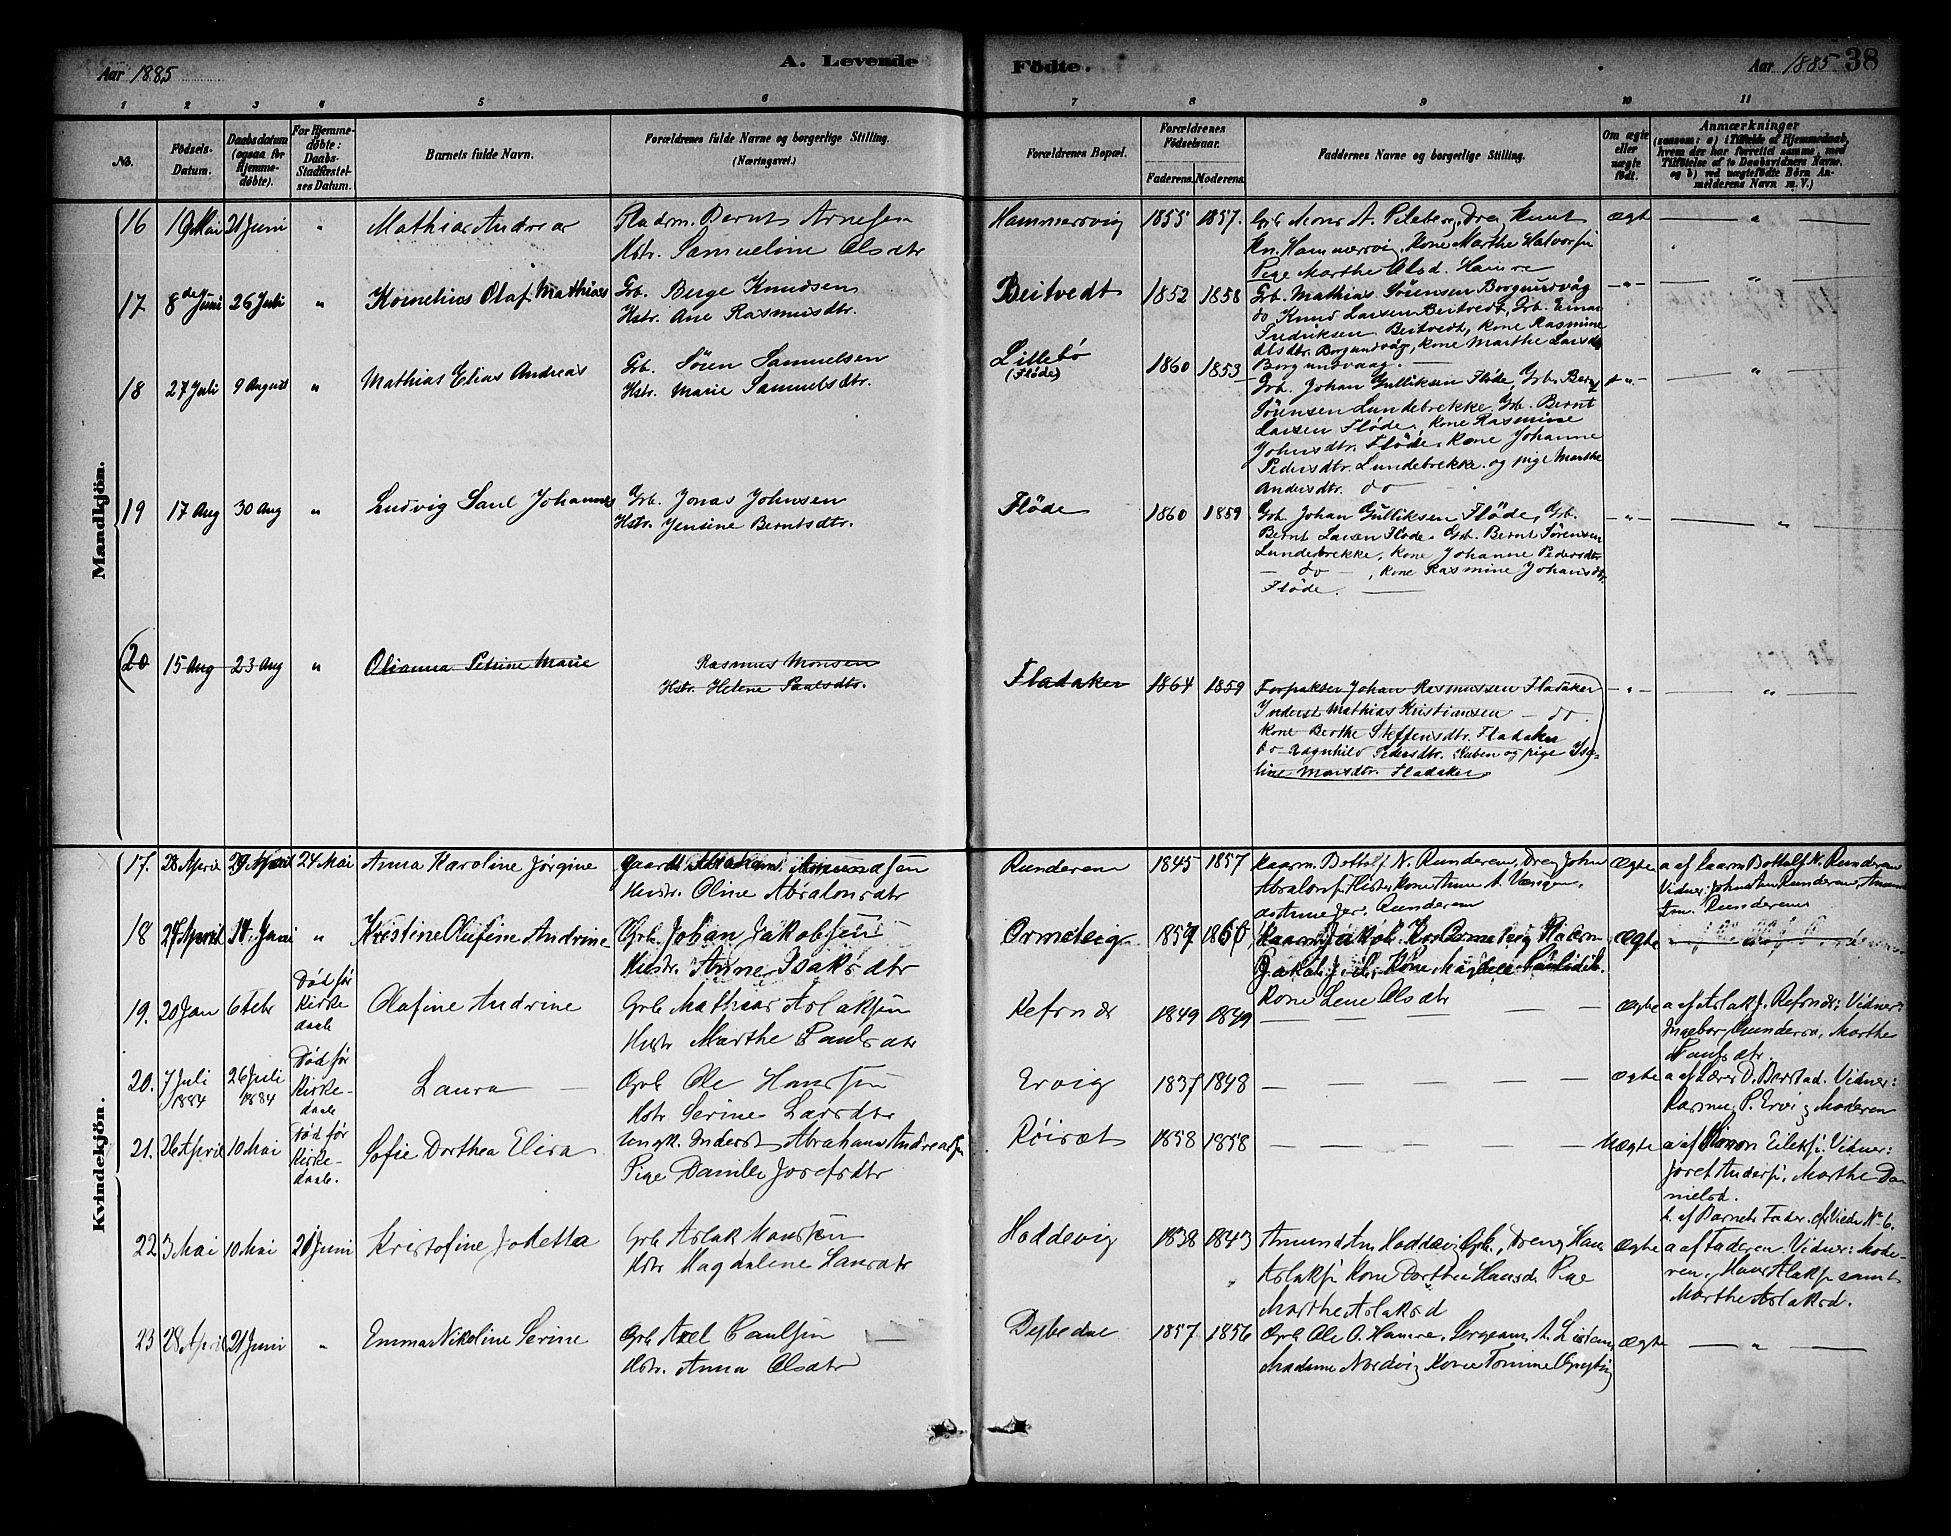 Aar 1885
A. Levende
Födte.
Aar 1885
38
1 2 3 4 5 6 7 8 9 10 11
No.
Födsels-
Datum.
Daabsdatum
(ogsaa for
Hjemme-
döbte).
For Hjemme-
döbte:
Daabs-
Stadfæstel-
ses Datum.
Barnets fulde Navn.
Forældrenes fulde Navne og borgerlige Stilling.
(Næringsvei.)
Forældrenes Bopæl.
Forældrenes
Födselsaar.
Faderens. Moderens.
Faddernes Navne og borgerlige Stilling.
Om ægte
eller
uægte
födt.
Anmærkninger
(saasom: a) i Tilfælde af Hjemmedaab,
hvem der har forrettet samme, med
Tilföielse af to Daabsvidners Navne,
og b) ved uægtefödte Børn An-
melderens Navn m. V.)
Mandkjön.
16 19 Mai 21 Juni " Mathias Andreas
Bernt Arnesen
Hstr. Samueline Olsdtr
Hammersvig 1855 1857.
Mons A. Pileberg, Drg Knut
Kn. Hammersvig, Kone Marthe Halvorsd
Pige Marthe Olsd. Hamre
ægte — " —
17 8de Juni 26 Juli " Kornelius Olaf Mathias
Grb. Berge Knudsen
Hstr. Ane Rasmusdtr.
Beitvedt 1852 1858
Grb. Mathias Sörensen Borgundvåg
do Knud Larsen Beitvedt, Grb. Einar
Fredriksen Beitvedt, Kone Rasmine
Olsdtr. Borgundvåg, Kone Marthe Larsdtr
Borgundvaag.
— " — — " —
18 27 Juli 9 August " Mathias Elias Andreas
Grb. Sören Samuelsen
Hstr. Marie Samuelsdtr.
Lillebö
(Flöde)
1860 1853
Grb. Johan Gulliksen Flöde, Grb. Bernt
Sörensen Lundebrekke, Grb. Bernt
Larsen Flöde, Kone Rasmine
Johnsdtr. Flöde, Kone Johanne
Pedersdtr. Lundebrekke og pige Marthe
Andersdtr. do —
— " — — " —
19 17 Aug 30 Aug " Ludvig Saul Johannes
Grb. Jonas Johnsen
Hstr. Jensine Berntsdtr.
Flöde 1860 1859
Grb. Johan Gulliksen Flöde, Grb.
Bernt Larsen Flöde, Grb. Bernt Sörensen
Lundebrekke, Kone Johanne Pedersdtr
— do —, Kone Rasmine Johansdtr.
Flöde.
— " — — " —
(20 15 Aug 23 Aug " Olianna Petrine Marie
Rasmus Monsen
Hstr. Helene Paulsdtr.
Fladaker 1864 1859
Forpakter Johan Rasmussen Fladaker
Inderst Mathias Kristiansen — do.
Kone Berthe Steffensdtr. Fladaker
do Ragnhild Pedersdtr. Kuben og pige Ise-
line Monsdtr. Fladaker)
— " — — " —
Kvindekjön.
17. 28 April 29 April 24 Mai Anna Karoline Jørgine
Amundsen
Hustr. Oline Absalonsdtr
Runderem 1845 1857
Kaarm. Bottolf N. Runderem, Dreg John
Kone Anne A.
Runderem
Ægte a af Kaarm Bottolf N. Runderem
Vidner: Runderem,
Runderem
18 24 April 14 Juni " Kristine Olufine Andrine
Grb. Johan Jakobsen
Hustr. Anne Isaksdtr
Ormeteig 1857 1860
Kaarm Jakob
Kone
Kone Lene Olsdtr
Ægte
19. 20 Jan 6 Febr Død før
Kirke-
daab
Olafine Andrine
Grb Mathias Aslaksen
Hustr Marthe Paulsdtr
Refsnæs 1849 1849
— — — — —
Ægte a af Aslak J. Refsnæs; Vidner:
Marthe
Paulsdtr.
20. 7 Juli
1884
26 Juli
1884
Død før
Kirke-
daab
Laura —
Grb Ole Hansen
Hstr Serine Larsdtr
Ervig 1837 1848
— — — — —
ægte a af Lærer D. Berstad. Vidner:
Rasmus P. Ervig Moderen
21. 26 April 10 Mai Død før
Kirke-
daab.
Sofie Dorthea Elisa
Ungk. Inderst Abraham Andreassen
Pige Josefsdtr
Røisæt 1858 1858
— — — — —
Uægte a af Simon Eileksen. Vidner:
Marthe Da-
nielsd.
b. af Barnets Fader. No 6.
22 3 Mai 10 Mai 21 Juni Kristofine Josetta
Grb Aslak Monsen
Hstr Magdalene Larsdtr
Hoddevig 1838 1843
Amund Am Hoddevig Grb., Dreng Hans
Aslaks Kone Dorthea Hansd. Pige
Marthe Aslaksd
Ægte a af Faderen. Vidner: Mode-
ren, Hans Aslaks samt
Marthe Aslaksd.
23 28 April 21 Juni " Emma Nikoline Serine
Grb Axel Paulsen —
Hstr. Anna Olsdtr
1857 1856
Grb Ole O. Hamre, Sergeant A.
Madame Nordvig Kone
Ægte — " —